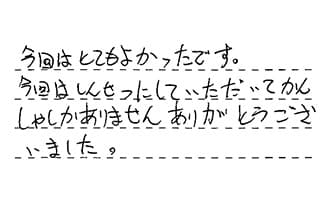 今回はとてもよかったです。
今回はしんせつにしていただいてかん
しゃしかありませんありがとうござ
いました。